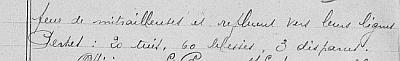 feux de mitrailleuses et refluent vers leurs lignes
Pertes : 20 tués, 60 blessés, 3 disparus.